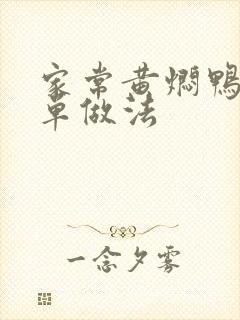 家常黄焖鸭
单做法
一念夕雾